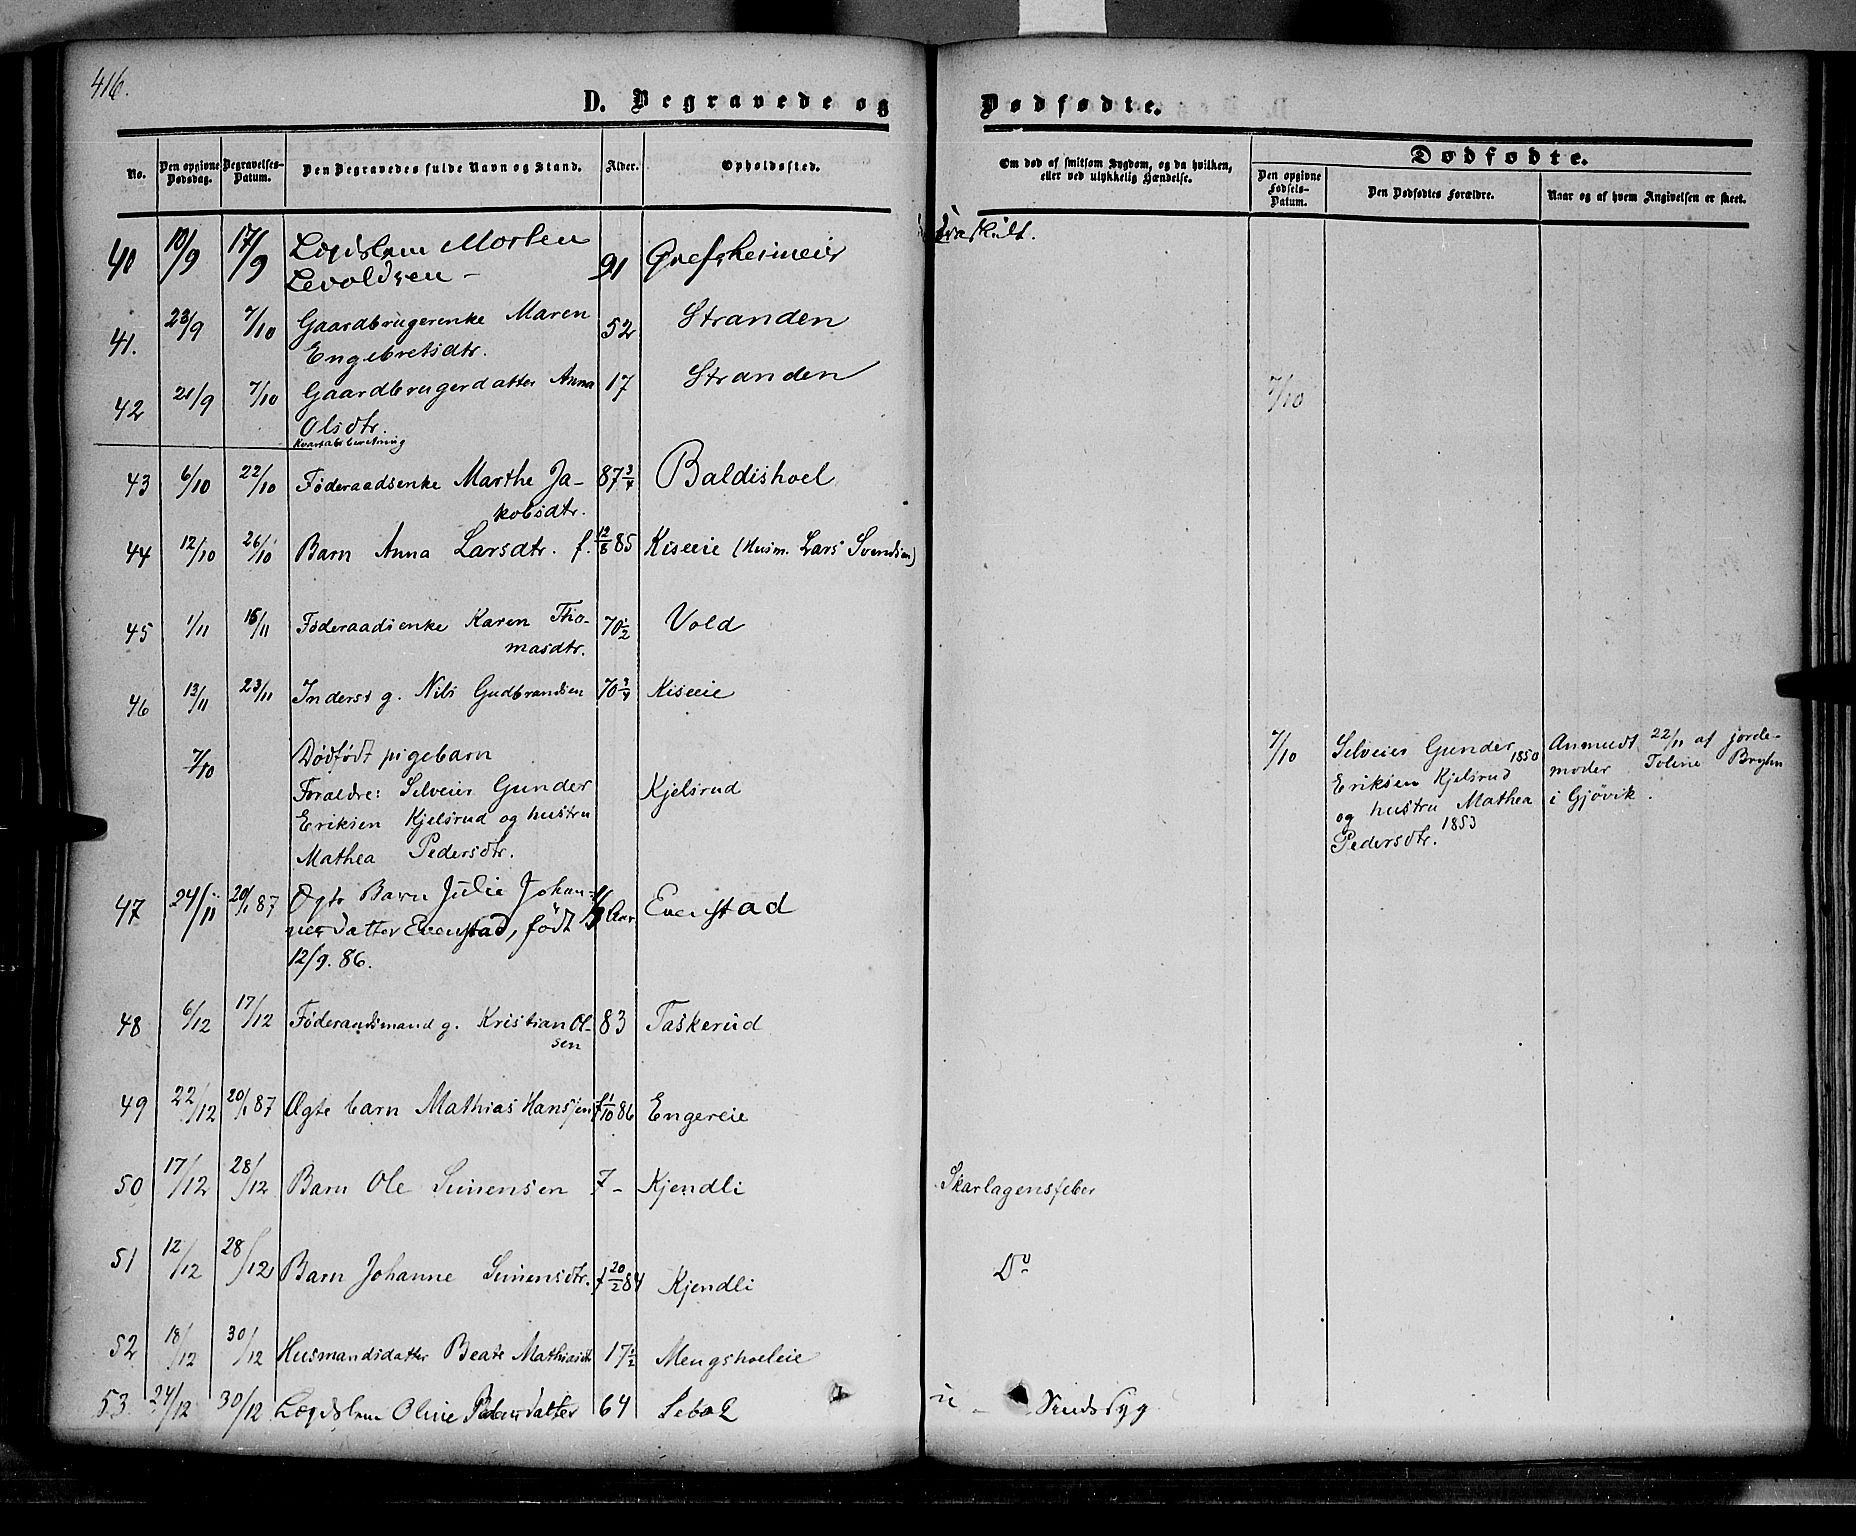 416.
D. Begravede og Dødfødte.
No.
Den opgivne Dødsdag.
Begravelses-Datum.
Den Begravedes fulde Navn og Stand.
Alder.
Opholdssted.
Om død af smitsom Sygdom, og da hvilken,
eller ved ulykkelig Hændelse.
Dødfødte.
Den opgivne Fødsels-Datum.
Den Dødfødtes Forældre.
Naar og af hvem Angivelsen er skeet.
40 10/9 17/9 Lægdslem Morten 91 Grefsheimeie fraskilt.
Levoldsen -
41. 23/9 7/10 Gaardbrugerenke Maren 52 Stranden
Engebretsdtr.
42 21/9 7/10 Gaardbrugerdatter Anna 17 Stranden 7/10
Olsdtr.
Kvartalsberetning
43 6/10 22/10 Føderaadsenke Marthe Ja- 87 3/4 Baldishoel
kobsdtr.
44 12/10 26/10 Barn Anna Larsdtr. f. 12/8 85 Kiseeie (Husm. Lars Svendsen)
45 1/11 15/11 Føderaadsenke Karen Tho- 70 1/2 Vold
masdtr.
46 13/11 23/11 Inderst g. Nils Gudbrandsen 70 3/4 Kiseeie
7/10 Dødfødt pigebarn
Foraldre: Selveier Gunder Kjelsrud
Eriksen Kjelsrud og hustru
Mathea Pedersdtr.
7/10 Selveier Gunder 1850
Eriksen Kjelsrud
og hustru Mathea
Pedersdtr. 1853
Anmeldt 22/11 af jorde-
moder Toline Bryhn
i Gjøvik.
47 24/11 20/1 87 Ægte Barn Julie Johan- Aar Evenstad
nesdatter Evenstad, født
12/9. 86.
48 6/12 17/12 Føderaadsmand g. Kristian Ol- 83 Taskerud
sen
49 22/12 20/1 87 Ægte barn Mathias Hansen f 1/10 86 Engereie
50 17/12 28/12 Barn Ole Simensen 7 - Kjendli Skarlagensfeber
51 12/12 28/12 Barn Johanne Simensdtr. f 20/2 84 Kjendli Do
52 18/12 30/12 Husmandsdatter Beate Mathiasdt 17 1/2 Mengshoeleie
53 24/12 30/12 Lægdslem Oline Pedersdatter 64 Sindssyg